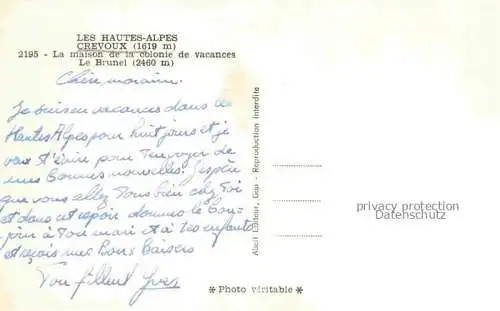 LES HAUTES-ALPES
CREVOUX (1619 m)
2195 - La maison de la colonie de vacances
Le Brunel (2460 m)
Chère marraine.
Je suis en vacances dans les
Hautes Alpes pour huit jours et je
veux t'écrire pour t'envoyer de
mes bonnes nouvelles. J'espère
que vous allez tous bien chez toi
et dans cet espoir donne le bon-
jour à ton mari et à tes enfants
et reçois mes Bons Baisers
Ton filleul Yves
Abeil Editeur, Gap - Reproduction interdite
* Photo véritable *
privacy protection
Datenschutz